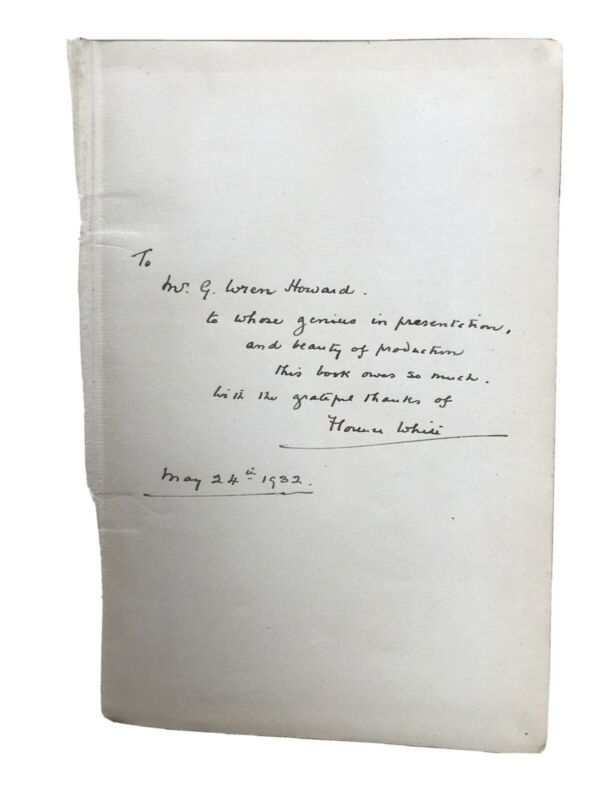 To
Mr. G. Wren Howard.
to whose genius in presentation,
and beauty of production
this book owes so much.
With the grateful thanks of
Florence White
May 24th 1932.